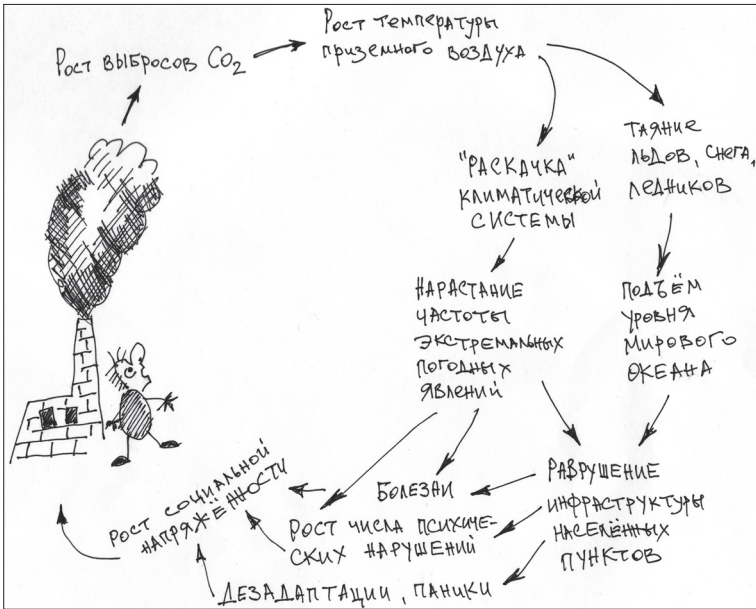 Рост выбросов CO₂
Рост температуры
приземного воздуха
"Раскачка"
климатической
системы
Таяние
льдов, снега,
ледников
Нарастание
частоты
экстремальных
погодных
явлений
Подъём
уровня
мирового
океана
Разрушение
инфраструктуры
населённых
пунктов
Болезни
Рост числа психиче-
ских нарушений
Дезадаптации, паники
Рост социальной
напряжённости